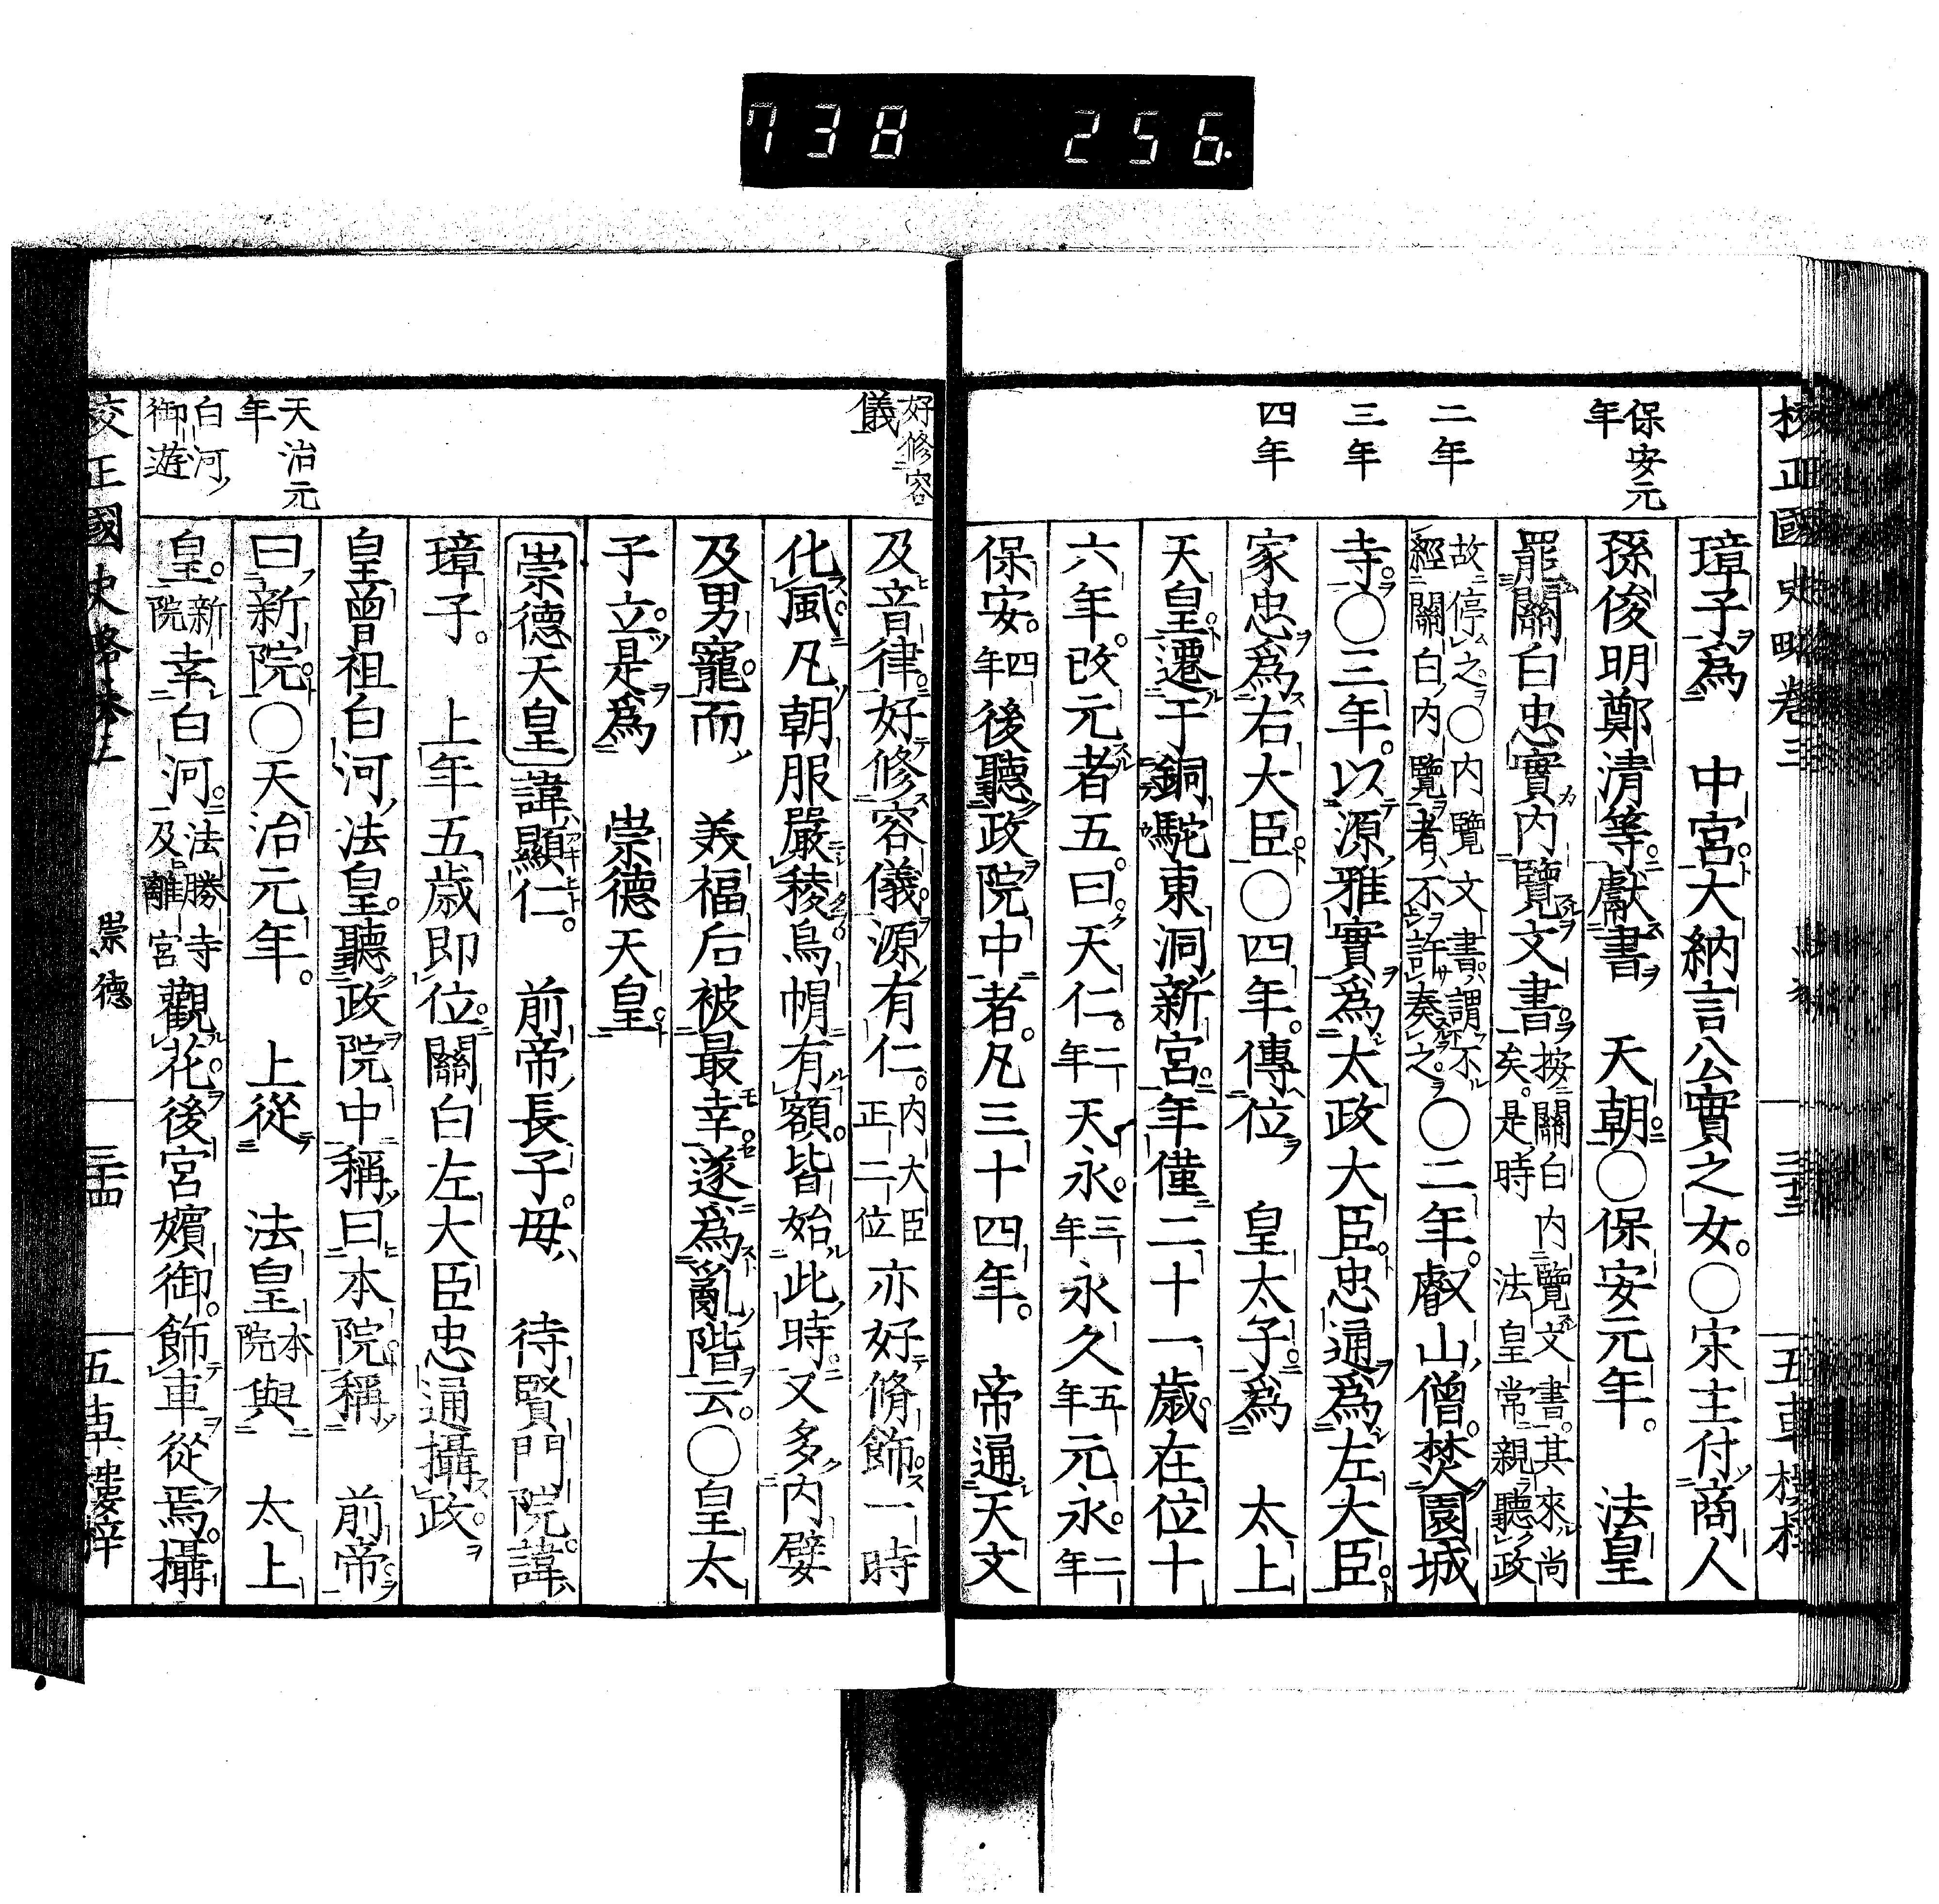 738 256.
校正國史畧卷三
三十三
五車樓梓
保安元年
二年
三年
四年
璋子爲 中宮大納言公實之女○宋主付商人
孫俊明鄭清等獻書 天朝○保安元年 法皇
罷關白忠實内覽文書按關白内覽文書其來尚矣是時 法皇常親聽政
故停之○内覽文書謂不經關白内覽者不許奏之○二年叡山僧焚園城
寺○三年以源雅實爲太政大臣忠通爲左大臣
家忠爲右大臣○四年傳位 皇太子爲 太上
天皇遷于銅駝東洞新宮年僅二十一歳在位十
六年改元者五曰天仁二年天永三年永久五年元永二年
保安四年後聽政院中者凡三十四年 帝通天文
好修容儀
天治元年
白河御遊
及音律好修容儀源有仁内大臣正二位亦好脩飾一時
化風凡朝服嚴稜烏帽有額皆始此時又多内嬖
及男寵而 美福后被最幸遂爲亂階云○皇太
子立是爲 崇德天皇
崇德天皇諱顯仁 前帝長子母 待賢門院諱
璋子 上年五歳即位關白左大臣忠通攝政
皇曾祖白河法皇聽政院中稱曰本院稱 前帝
曰新院○天治元年 上從 法皇本院與 太上
皇新院幸白河法勝寺及離宮觀花後宮嬪御飾車從焉攝
校正國史畧卷三
崇德
三十四
五車樓梓